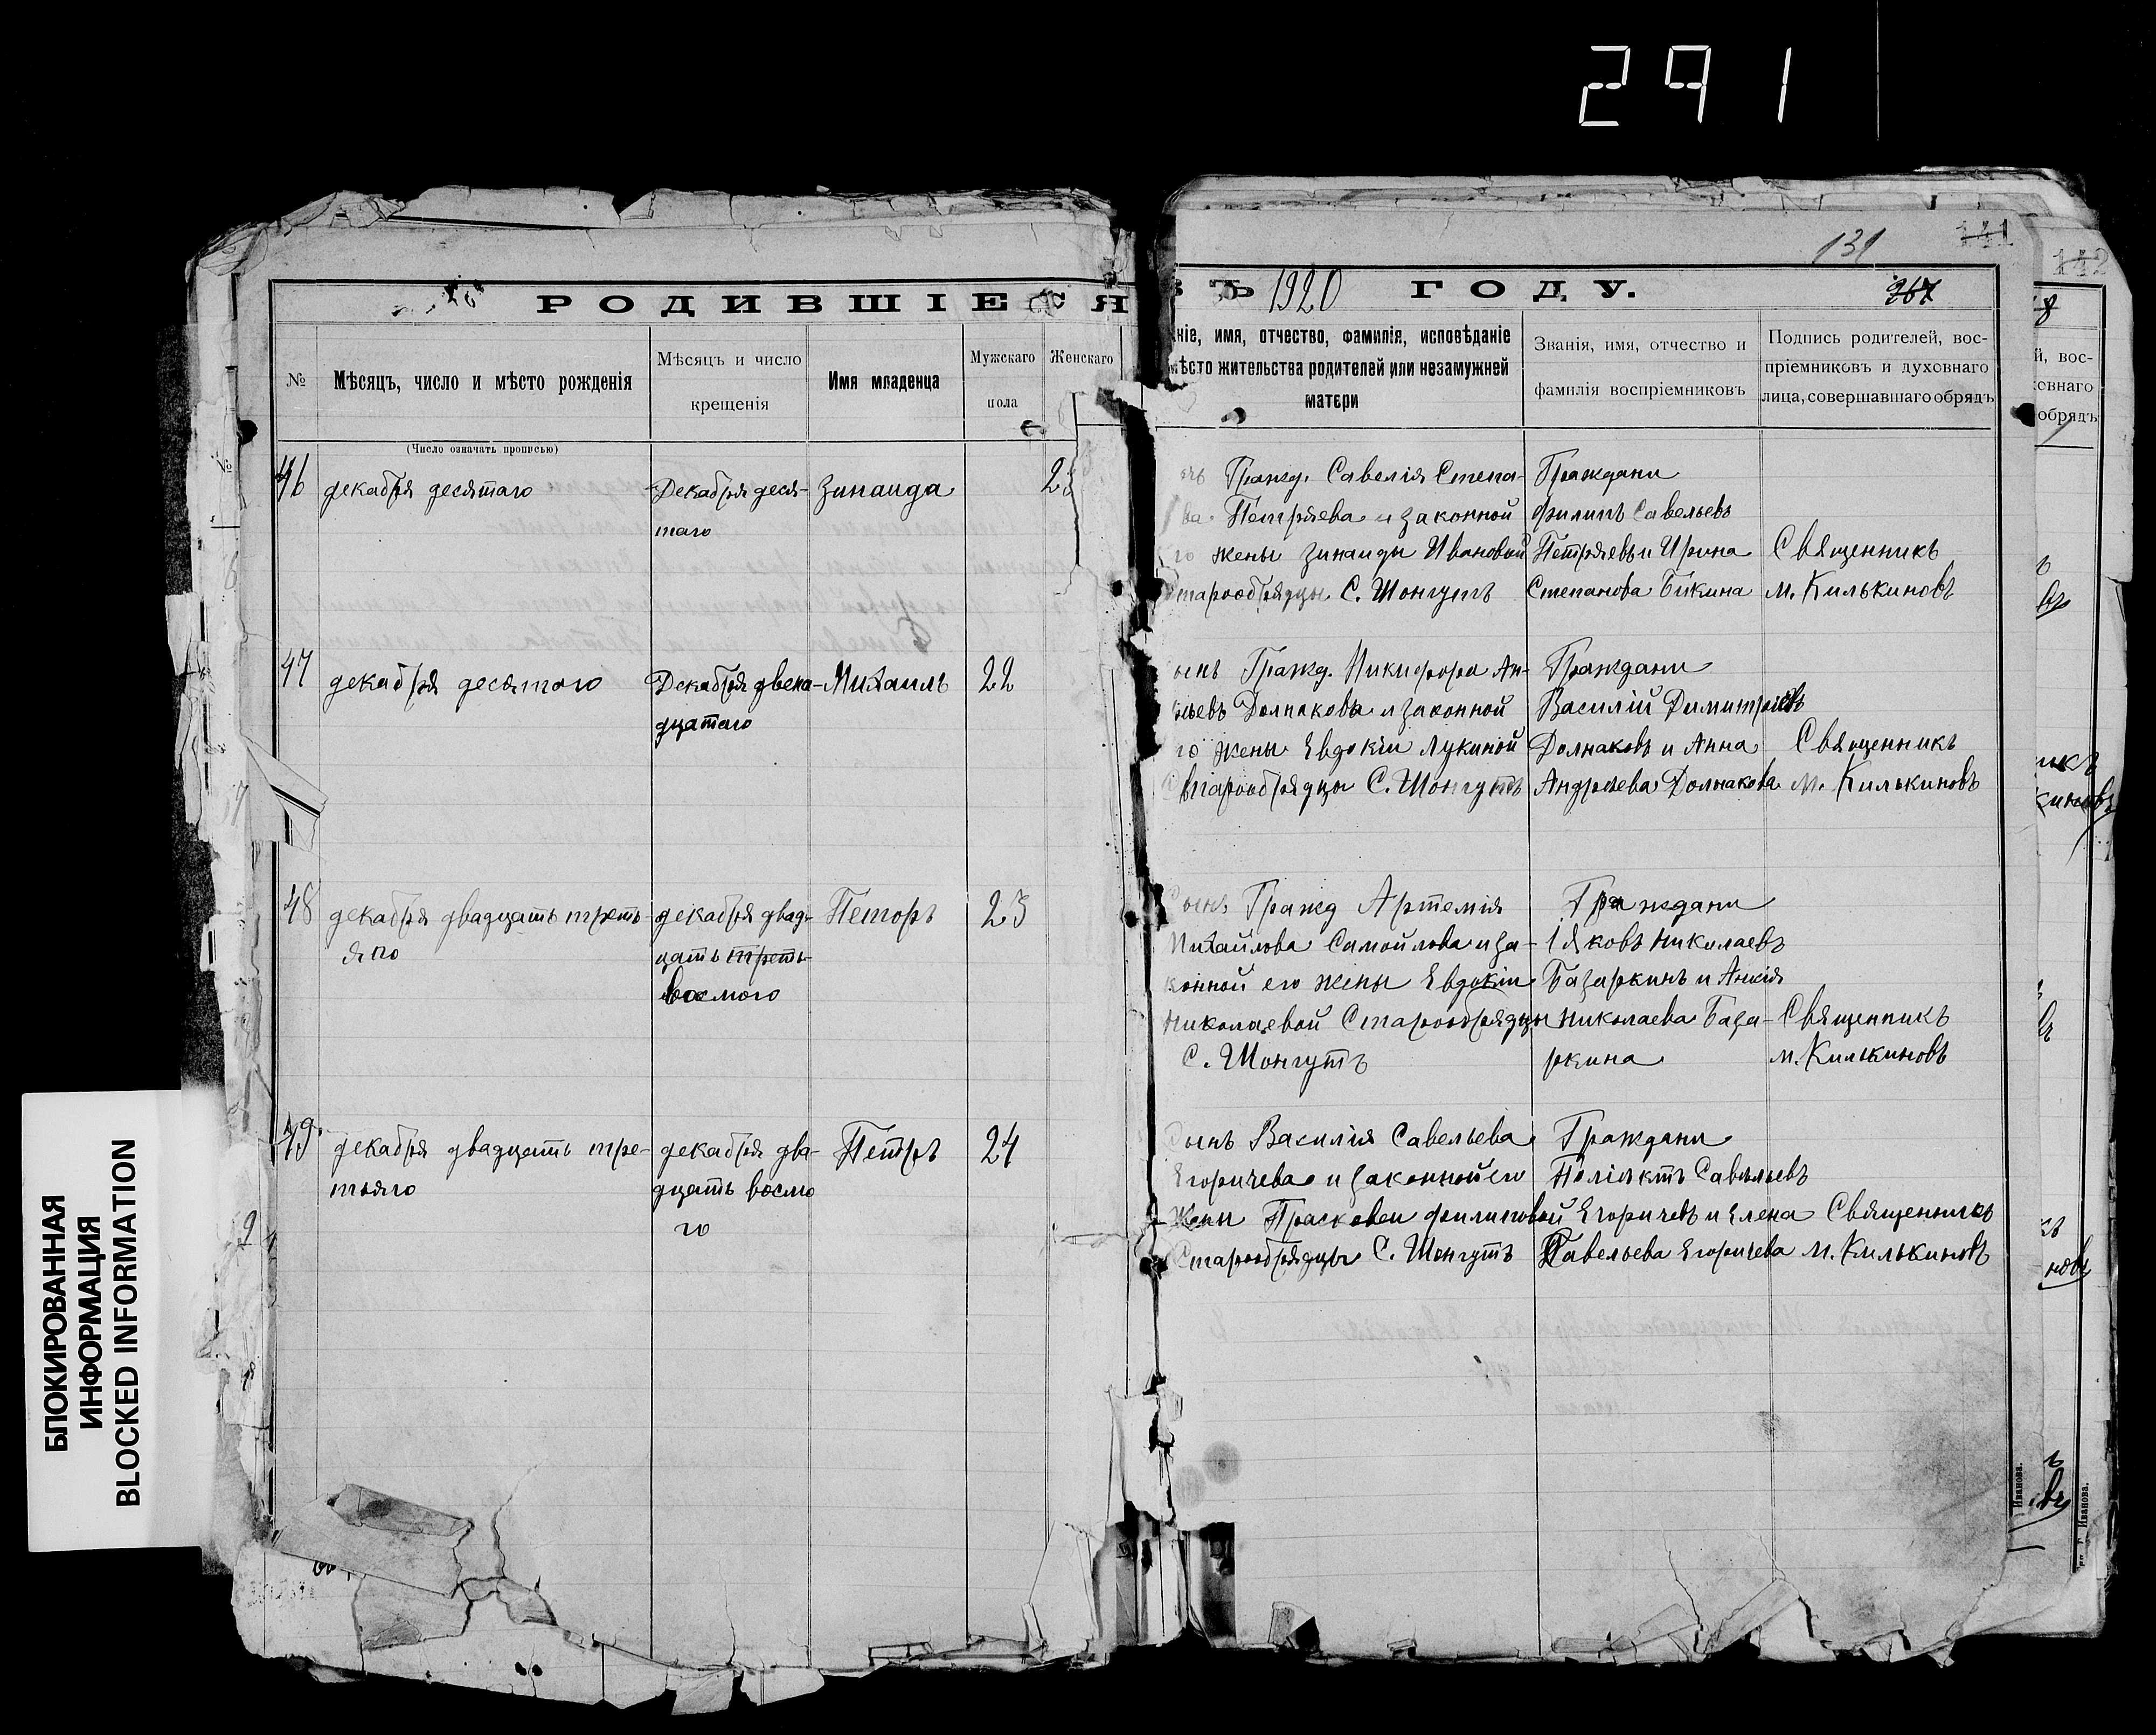 291
131
141
142
РОДИВШІЕСЯ
ВЪ 1920 ГОДУ.
367
№
Мѣсяцъ, число и мѣсто рожденія
Мѣсяцъ и число
крещенія
Имя младенца
Мужскаго
пола
Женскаго
ніе, имя, отчество, фамилія, исповѣданіе
мѣсто жительства родителей или незамужней
матери
Званія, имя, отчество и
фамилія воспріемниковъ
Подпись родителей, вос-
пріемниковъ и духовнаго
лица, совершавшаго обрядъ
(Число означать прописью)
46
декабря десятаго
Декабря деся-
таго
Зинаида
Гражд. Савелія Степа-
ва Петряева и законной
го жены Зинаиды Ивановой
Старообрядцы С. Шонгутъ
Граждани
Филипъ Савельевъ
Петряевъ и Ирина
Степанова Бикина
Священникъ
М. Килькиновъ
47
декабря десятого
Декабря двена-
дцатаго
Михаилъ
22
ынъ Гражд. Никифора Ан-
ьевъ Долнакова и законной
го жены Евдокіи Лукиной
Старообрядцы С. Шонгутъ
Граждани
Василій Димитріевъ
Долнаковъ и Анна
Андреева Долнакова
Священникъ
М. Килькиновъ
48
декабря двадцать треть-
яго
декабря двад-
цать треть-
восмого
Петоръ
23
Сынъ Гражд Артемія
Михайлова Самойлова и за-
конной его жены Евдокіи
Николаевой Старообрядцы
С. Шонгутъ
Граждани
Яковъ Николаевъ
Базаркинъ и Анисія
Николаева База-
ркина
Священникъ
М. Килькиновъ
49
декабря двадцать тре-
тьяго
декабря два-
дцать восмо
го
Петръ
24
Сынъ Василія Савельева
Егоричева и законной его
Жены Прасковеи Филиповой
Старообрядцы С. Шонгутъ
Граждани
Поліектъ Савельевъ
Егоричевъ и Елена
Савельева Егоричева
Священникъ
М. Килькиновъ
БЛОКИРОВАННАЯ
ИНФОРМАЦИЯ
BLOCKED INFORMATION
й, вос-
овнаго
обрядъ
Иванова.
Г. Иванова.